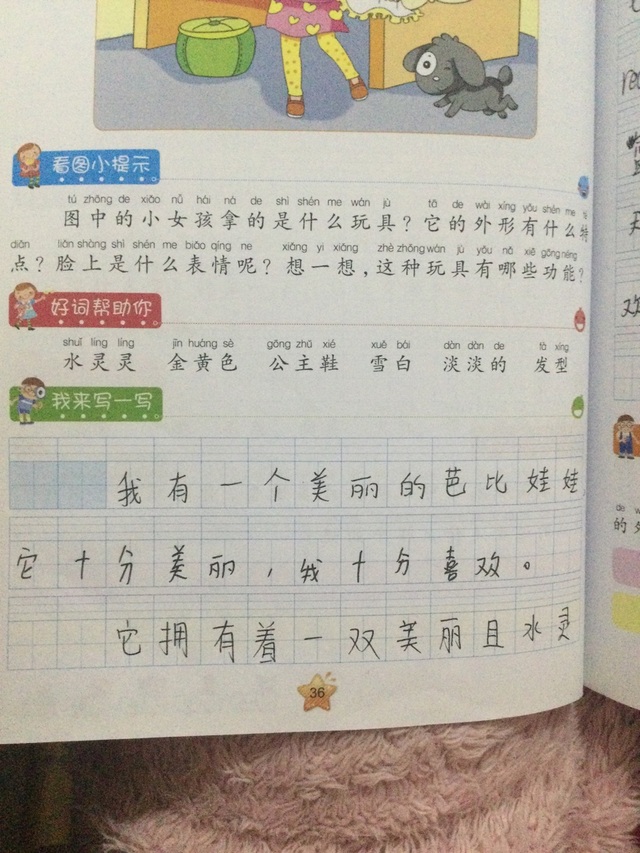 看图小提示
tú zhōng de xiǎo nǚ hái ná de shì shén me wán jù tā de wài xíng yǒu shén me tè
图中的小女孩拿的是什么玩具？它的外形有什么特
diǎn liǎn shàng shì shén me biǎo qíng ne xiǎng yi xiǎng zhè zhǒng wán jù yǒu nǎ xiē gōng néng
点？脸上是什么表情呢？想一想，这种玩具有哪些功能？
好词帮助你
shuǐ líng líng jīn huáng sè gōng zhǔ xié xuě bái dàn dàn de fà xíng
水灵灵 金黄色 公主鞋 雪白 淡淡的 发型
我来写一写
我有一个美丽的芭比娃娃
它十分美丽，我十分喜欢。
它拥有着一双美丽且水灵
36
de
的
欢